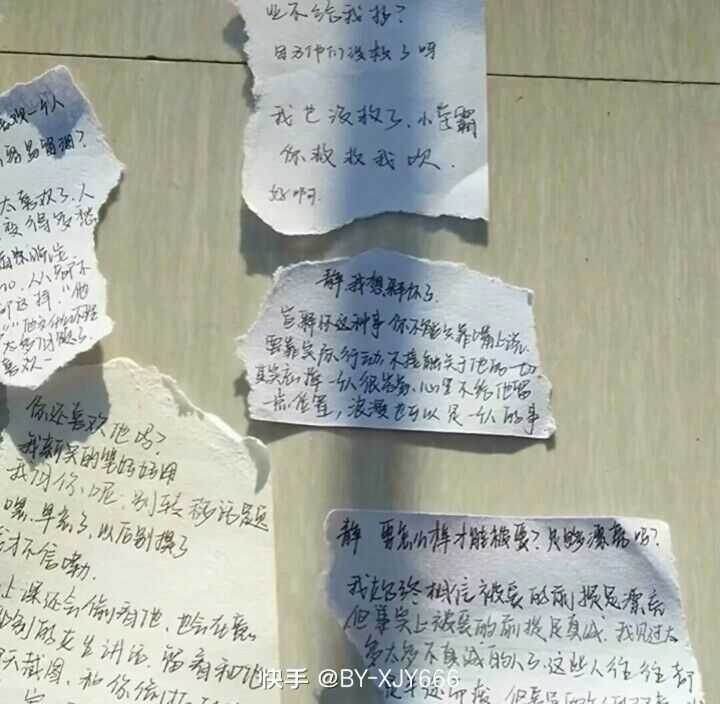 业不给我抄?
因为他们没救了呀
我也没救了,小学霸
你救救我呗.
好啊.
喜欢一个人
容易留泪?
太喜欢了.人
变得多愁
人人都不
静,我想释怀了.
宣释怀这种事你不能只靠嘴上说.
要靠实际行动.不接触关于他的一切
其实忘掉一个人很容易.心里不给他留
一点位置,浪漫也可以是一个人的事
你还喜欢他吗?
我新买的笔好好用
我问你呢,别转移话题
嘿.早忘了,以后别提了
才不信嘞.
上课还会偷看他.也会在意
别的女生讲话.留着和他
天截图.和你偷
静 要怎么样才能被爱?只够漂亮吗?
我始终相信被爱的前提是漂亮
但事实上被爱的前提是真诚.我见过太
多太多不真诚的人了.这些人往往都
快手 @BY-XJY666